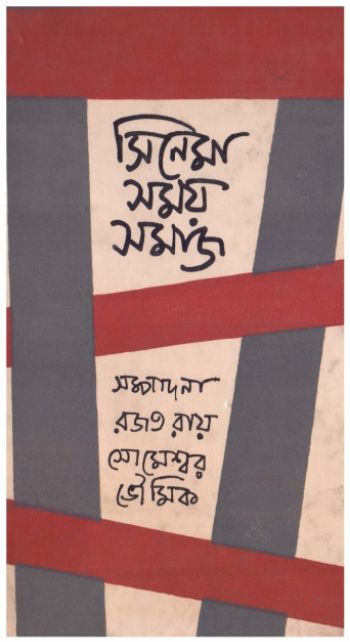 সিনেমা
সময়
সমাজ
সম্পাদনা
রজত রায়
সোমেশ্বর
ভৌমিক